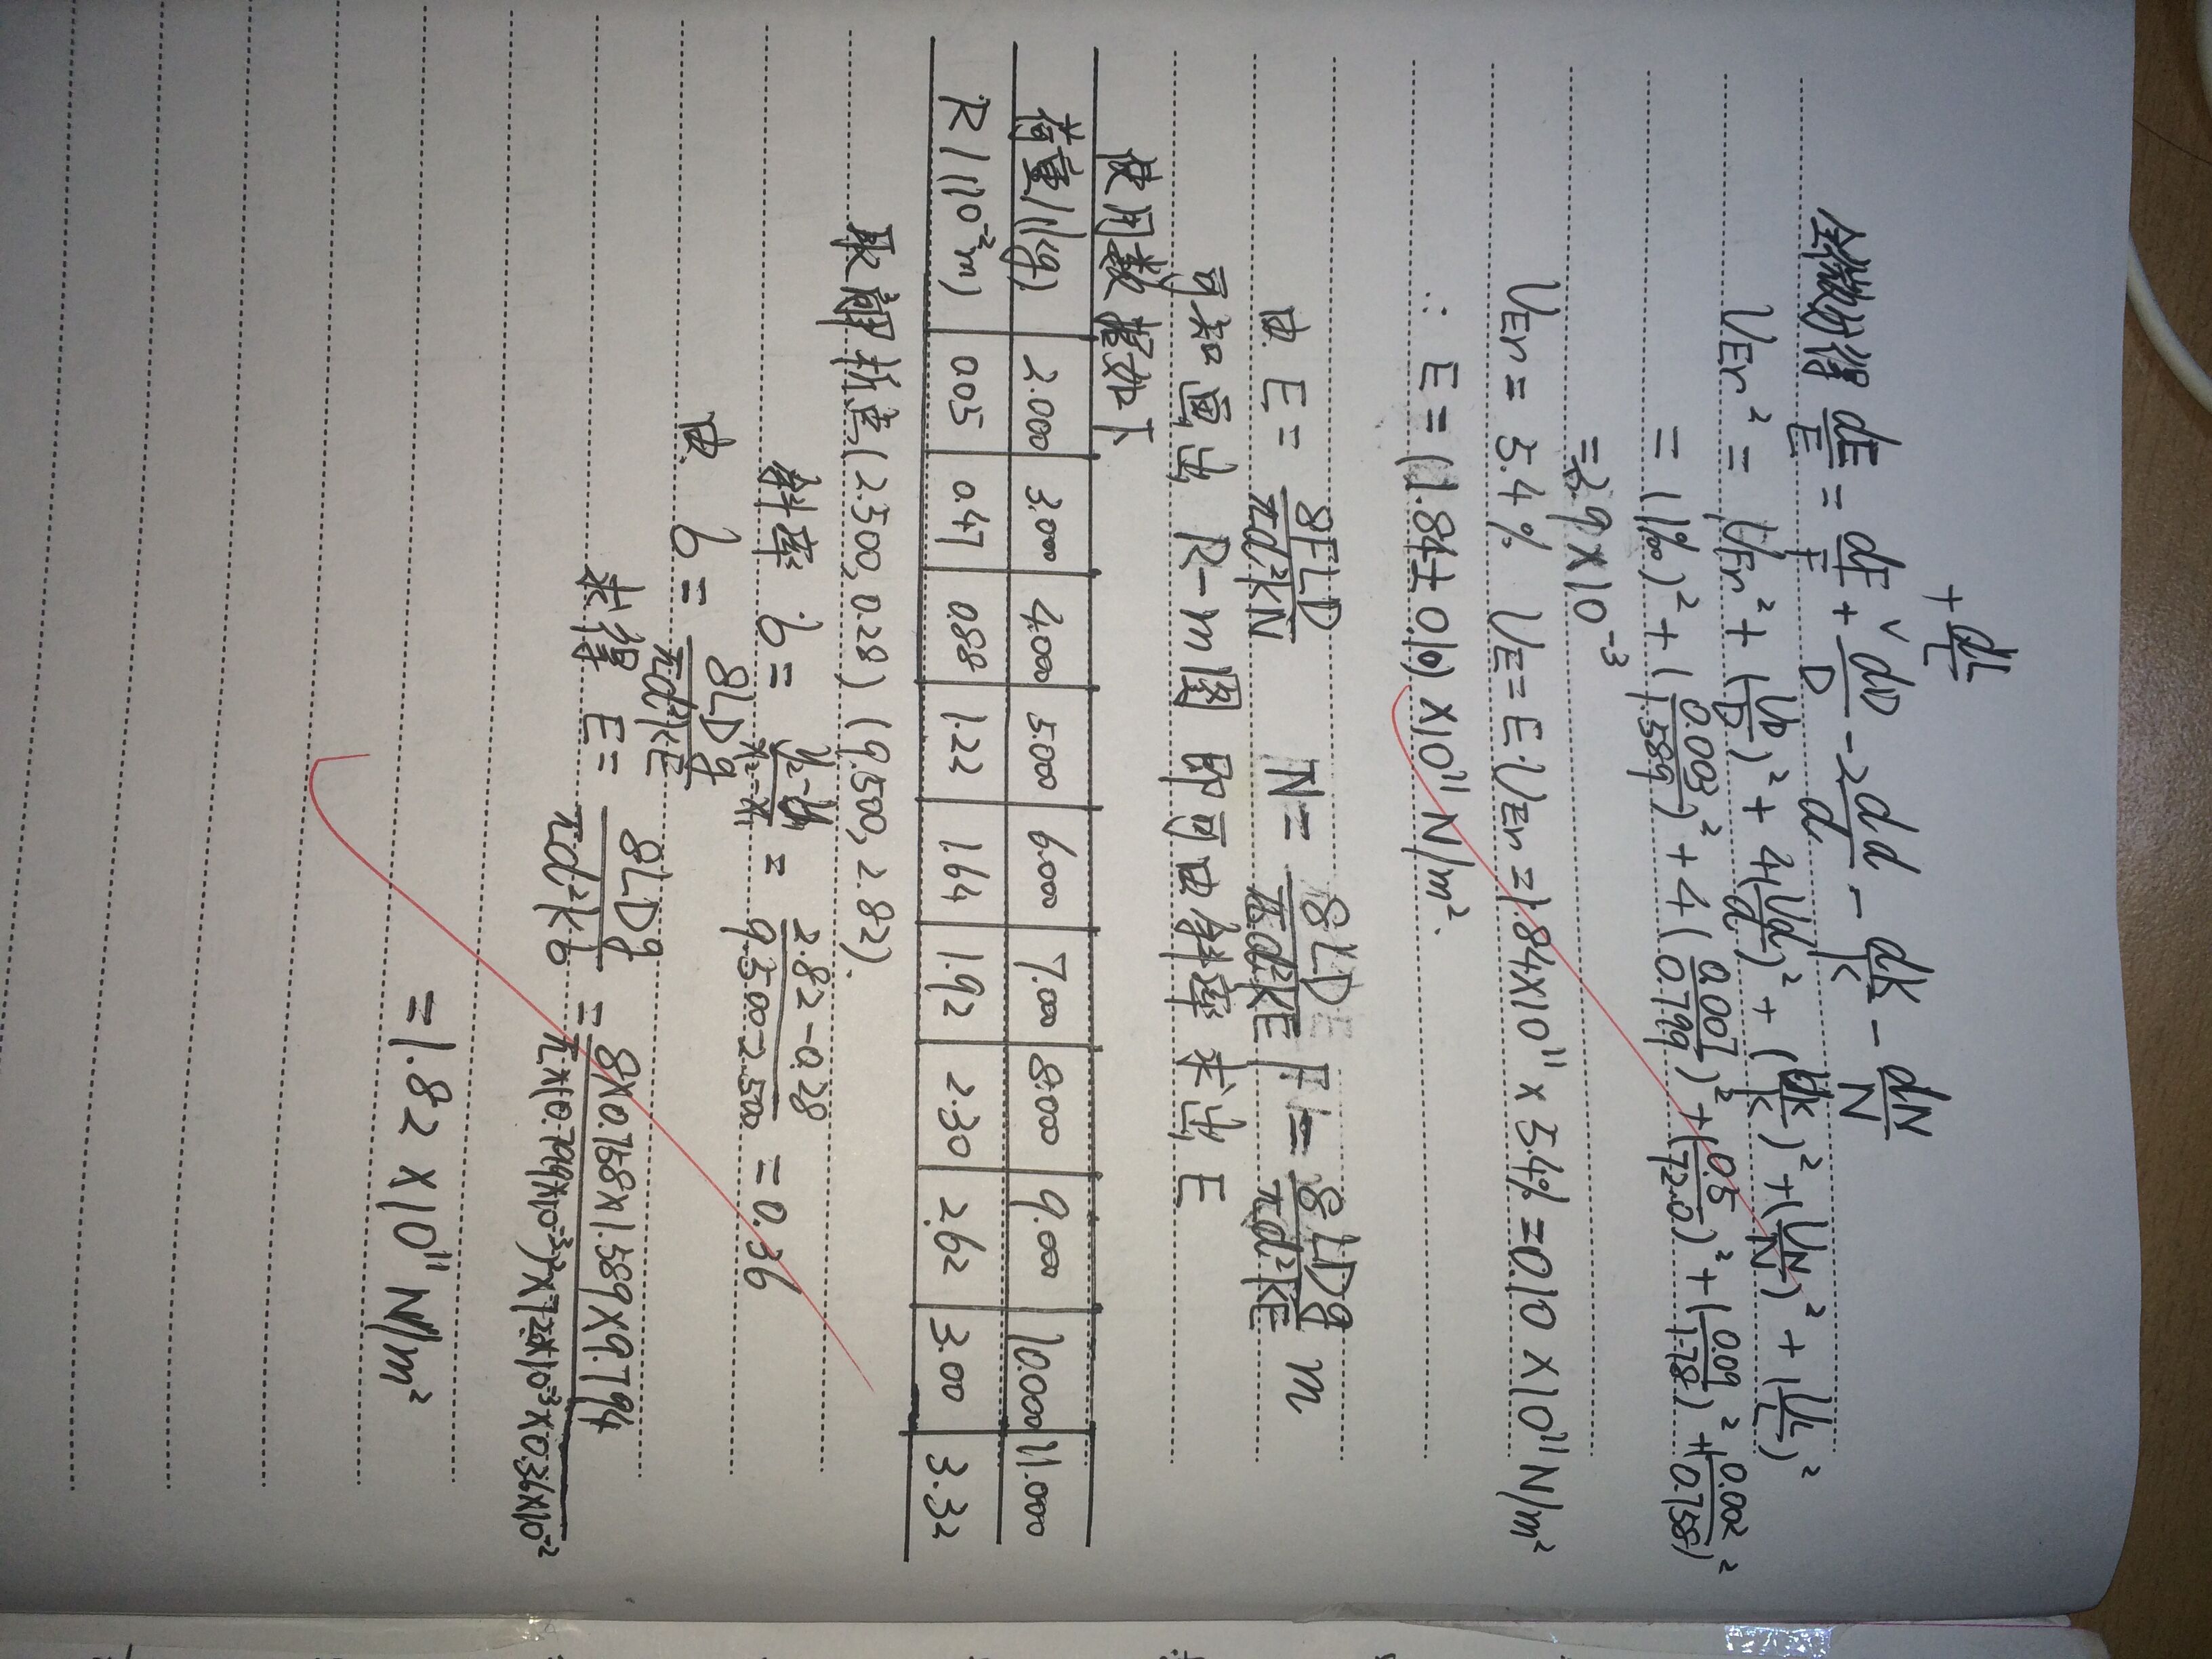 + dL/L
全微分得 dE/E = dF/F + dD/D - 2dd/d - dK/K - dN/N
U_Er² = U_Fr² + (U_D/D)² + 4(U_d/d)² + (U_K/K)² + (U_N/N)² + (U_L/L)²
= (1‰)² + (0.003/1.589)² + 4(0.007/0.799)² + (0.5/72.0)² + (0.09/1.78)² + (0.002/0.758)²
= 2.9×10⁻³
U_Er = 5.4% U_E = E·U_Er = 1.84×10¹¹ × 5.4% = 0.10×10¹¹ N/m²
∴ E = (1.84±0.10)×10¹¹ N/m².
由 E = 8FLD/πd²KN N = 8LD/πd²KE F = 8LDg/πd²KE m
可知画出 R-m图 即可由斜率求出 E
使用数据如下
荷重/(kg) 2.000 3.000 4.000 5.000 6.000 7.000 8.000 9.000 10.000 11.000
R/(10⁻²m) 0.05 0.47 0.88 1.22 1.64 1.92 2.30 2.62 3.00 3.32
取解析点(2.500, 0.28) (9.500, 2.82).
斜率 b = y₂-y₁/x₂-x₁ = 2.82-0.28/9.500-2.500 = 0.36
由 b = 8LDg/πd²KE
求得 E = 8LDg/πd²Kb = 8×0.758×1.589×9.794/π×(0.799×10⁻³)²×72.0×10⁻³×0.36×10⁻²
= 1.82×10¹¹ N/m²